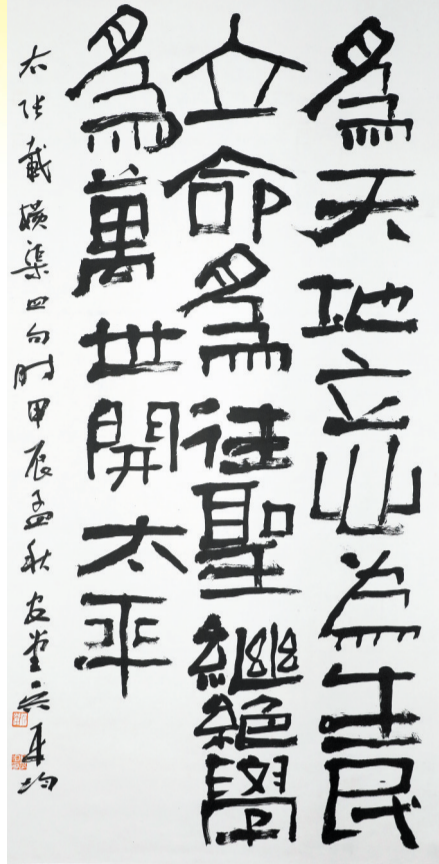 為天地立心为生民
立命為往聖繼絕學
為萬世開太平
右张載橫渠四句时甲辰孟秋